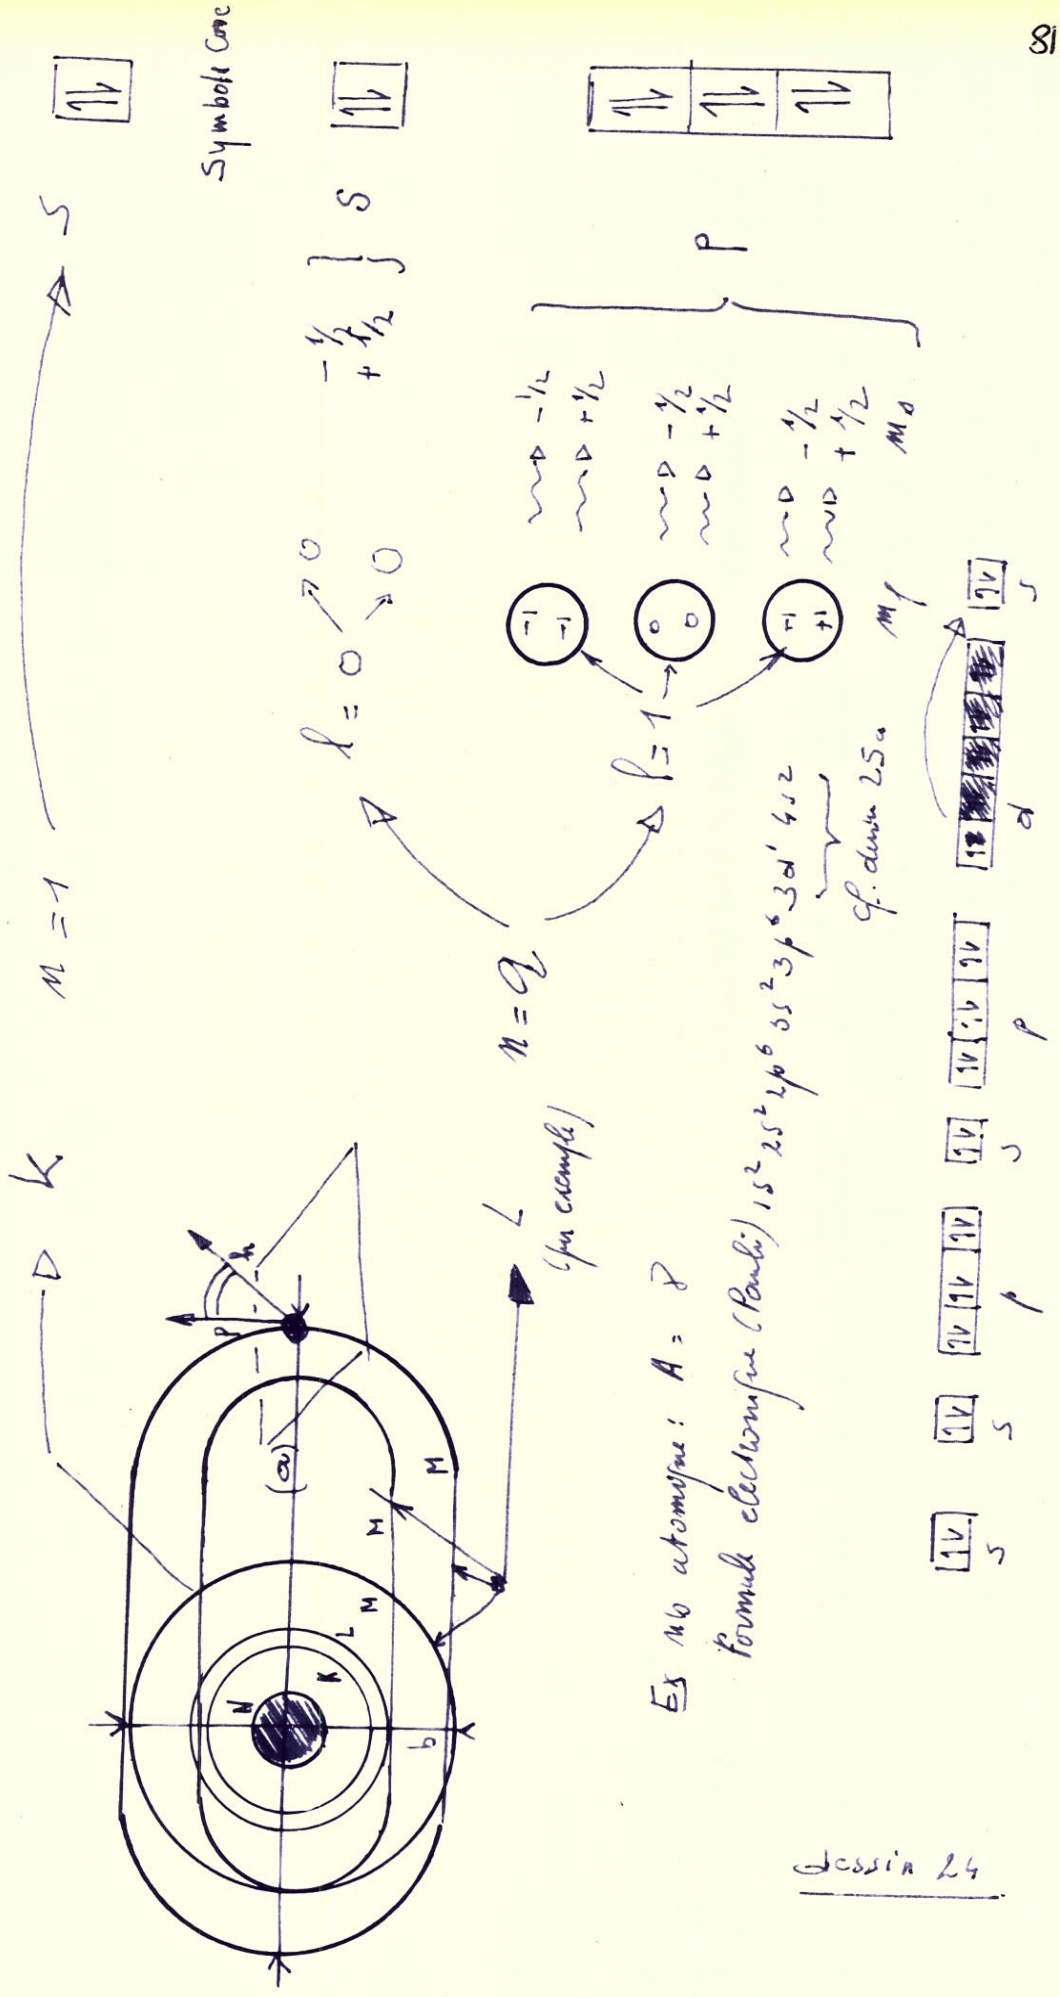 81
K
n = 1
s
Symbole Case
N
K
L
M
M
M
(a)
b
p
h
L
(par exemple)
l = 0
0
0
- 1/2
+ 1/2
S
l = 1
-1
-1
0
0
+1
+1
- 1/2
+ 1/2
- 1/2
+ 1/2
- 1/2
+ 1/2
P
ml
ms
Ex nb atomique : A =
Formule électronique (Pauli) 1s² 2s² 2p⁶ 3s² 3p⁶ 3d¹ 4s2
cf. dessin 25a
s
s
p
s
p
d
s
dessin 24